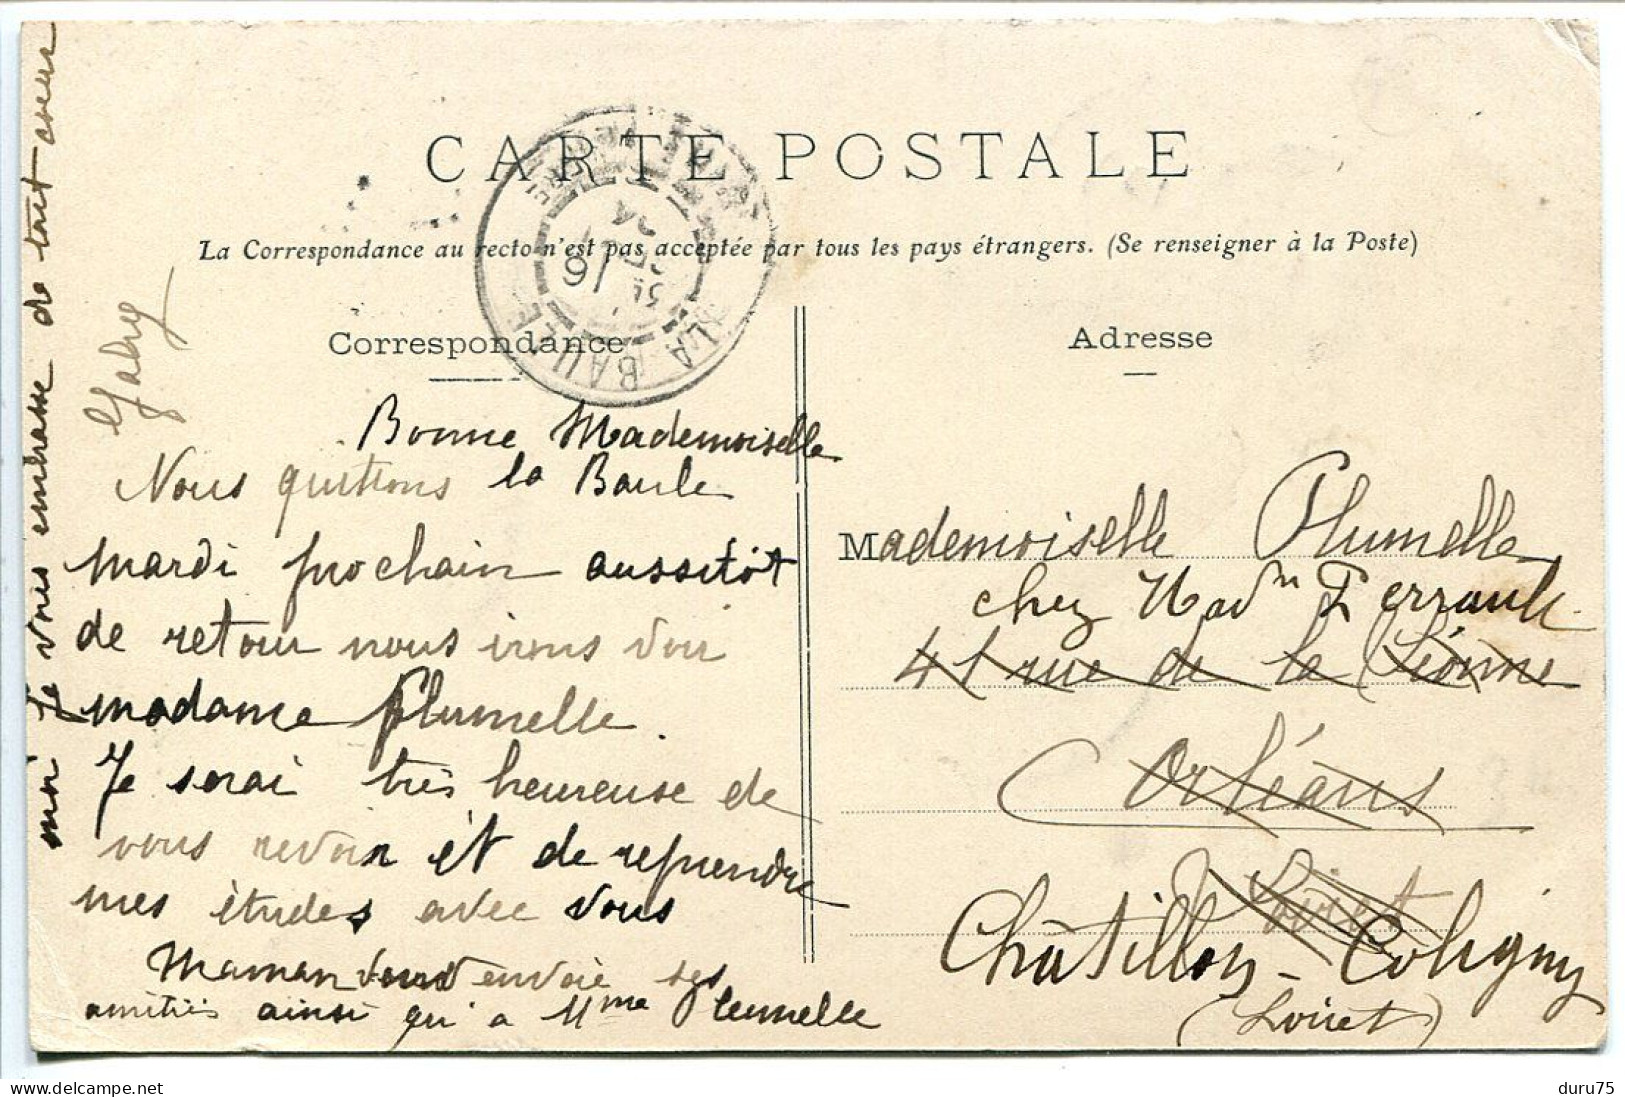 CARTE POSTALE
La Correspondance au recto n'est pas acceptée par tous les pays étrangers. (Se renseigner à la Poste)
LA BAULE
16
04
Correspondance
Bonne Mademoiselle
Nous quittons la Baule
mardi prochain aussitôt
de retour nous irons voir
madame Plumelle.
Je serai très heureuse de
vous revoir et de reprendre
mes études avec vous
Maman vous envoie ses
amitiés ainsi qu'a Mme Plumelle
moi je vous embrasse de tout coeur
Gaby
Adresse
Mademoiselle Plumelle
chez Madm Perrault
41 rue de la Lionne
Orléans
Loiret
Châtillon-Coligny
(Loiret)
duru75